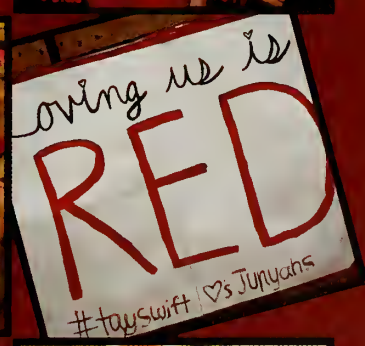 Loving us is
RED
#tayswift | ♡s Junyahs